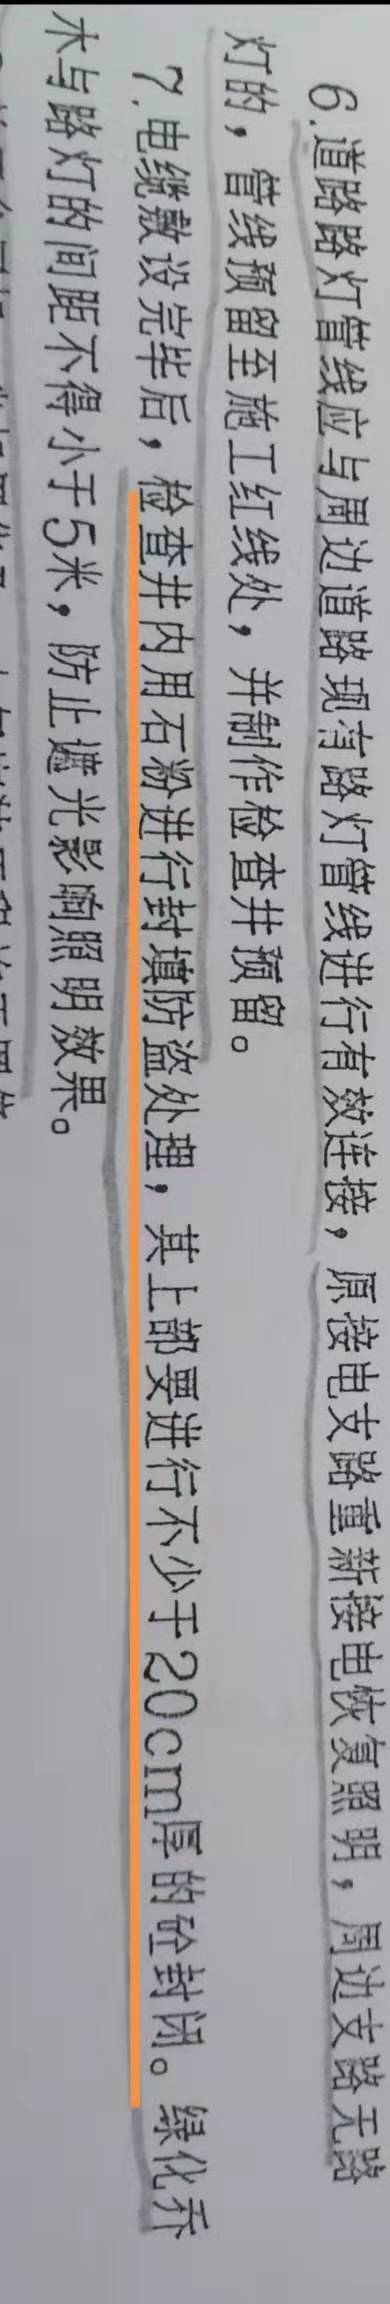 6.道路路灯管线应与周边道路现有路灯管线进行有效连接，原接电支路重新接电恢复照明，周边支路无路
灯的，管线预留至施工红线处，并制作检查井预留。
7.电缆敷设完毕后，检查井内用石粉进行封填防盗处理，其上部要进行不少于20cm厚的砼封闭。绿化乔
木与路灯的间距不得小于5米，防止遮光影响照明效果。